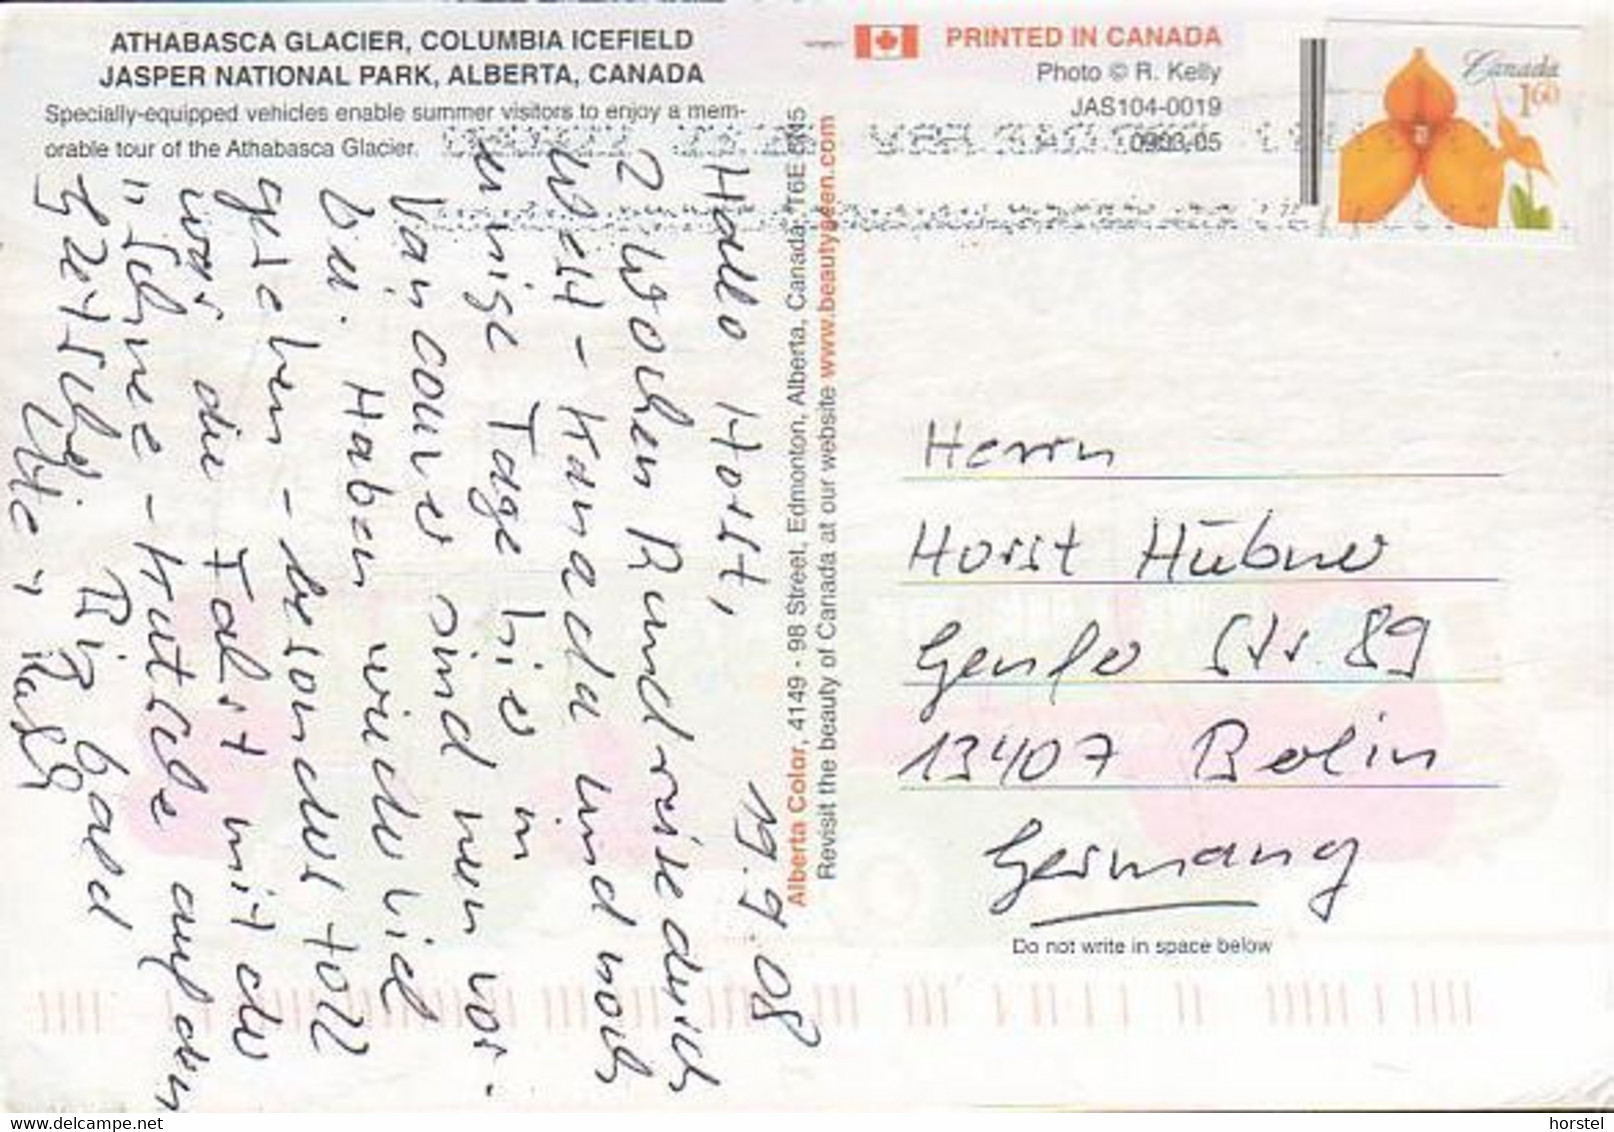 ATHABASCA GLACIER, COLUMBIA ICEFIELD
JASPER NATIONAL PARK, ALBERTA, CANADA
Specially-equipped vehicles enable summer visitors to enjoy a mem-
orable tour of the Athabasca Glacier.
PRINTED IN CANADA
Photo © R. Kelly
JAS104-0019
0903,05
Canada
1.60
Alberta Color, 4149 - 98 Street, Edmonton, Alberta, Canada, T6E 5N5
Revisit the beauty of Canada at our website www.beautyseen.com
19.9.08
Hallo Horst,
2 Wochen Rundreise durch
West-Kanada und noch
einige Tage hier in
Vancouver sind nun vor-
bei. Haben wieder viel
gesehen - besonders toll
war die Fahrt mit der
"Schnee-Kutsche auf dem
Gletscher"
Bis bald
Ute + Ralf
Herrn
Horst Hübner
Genfer Str. 89
13407 Berlin
Germany
Do not write in space below
horstel
www.delcampe.net